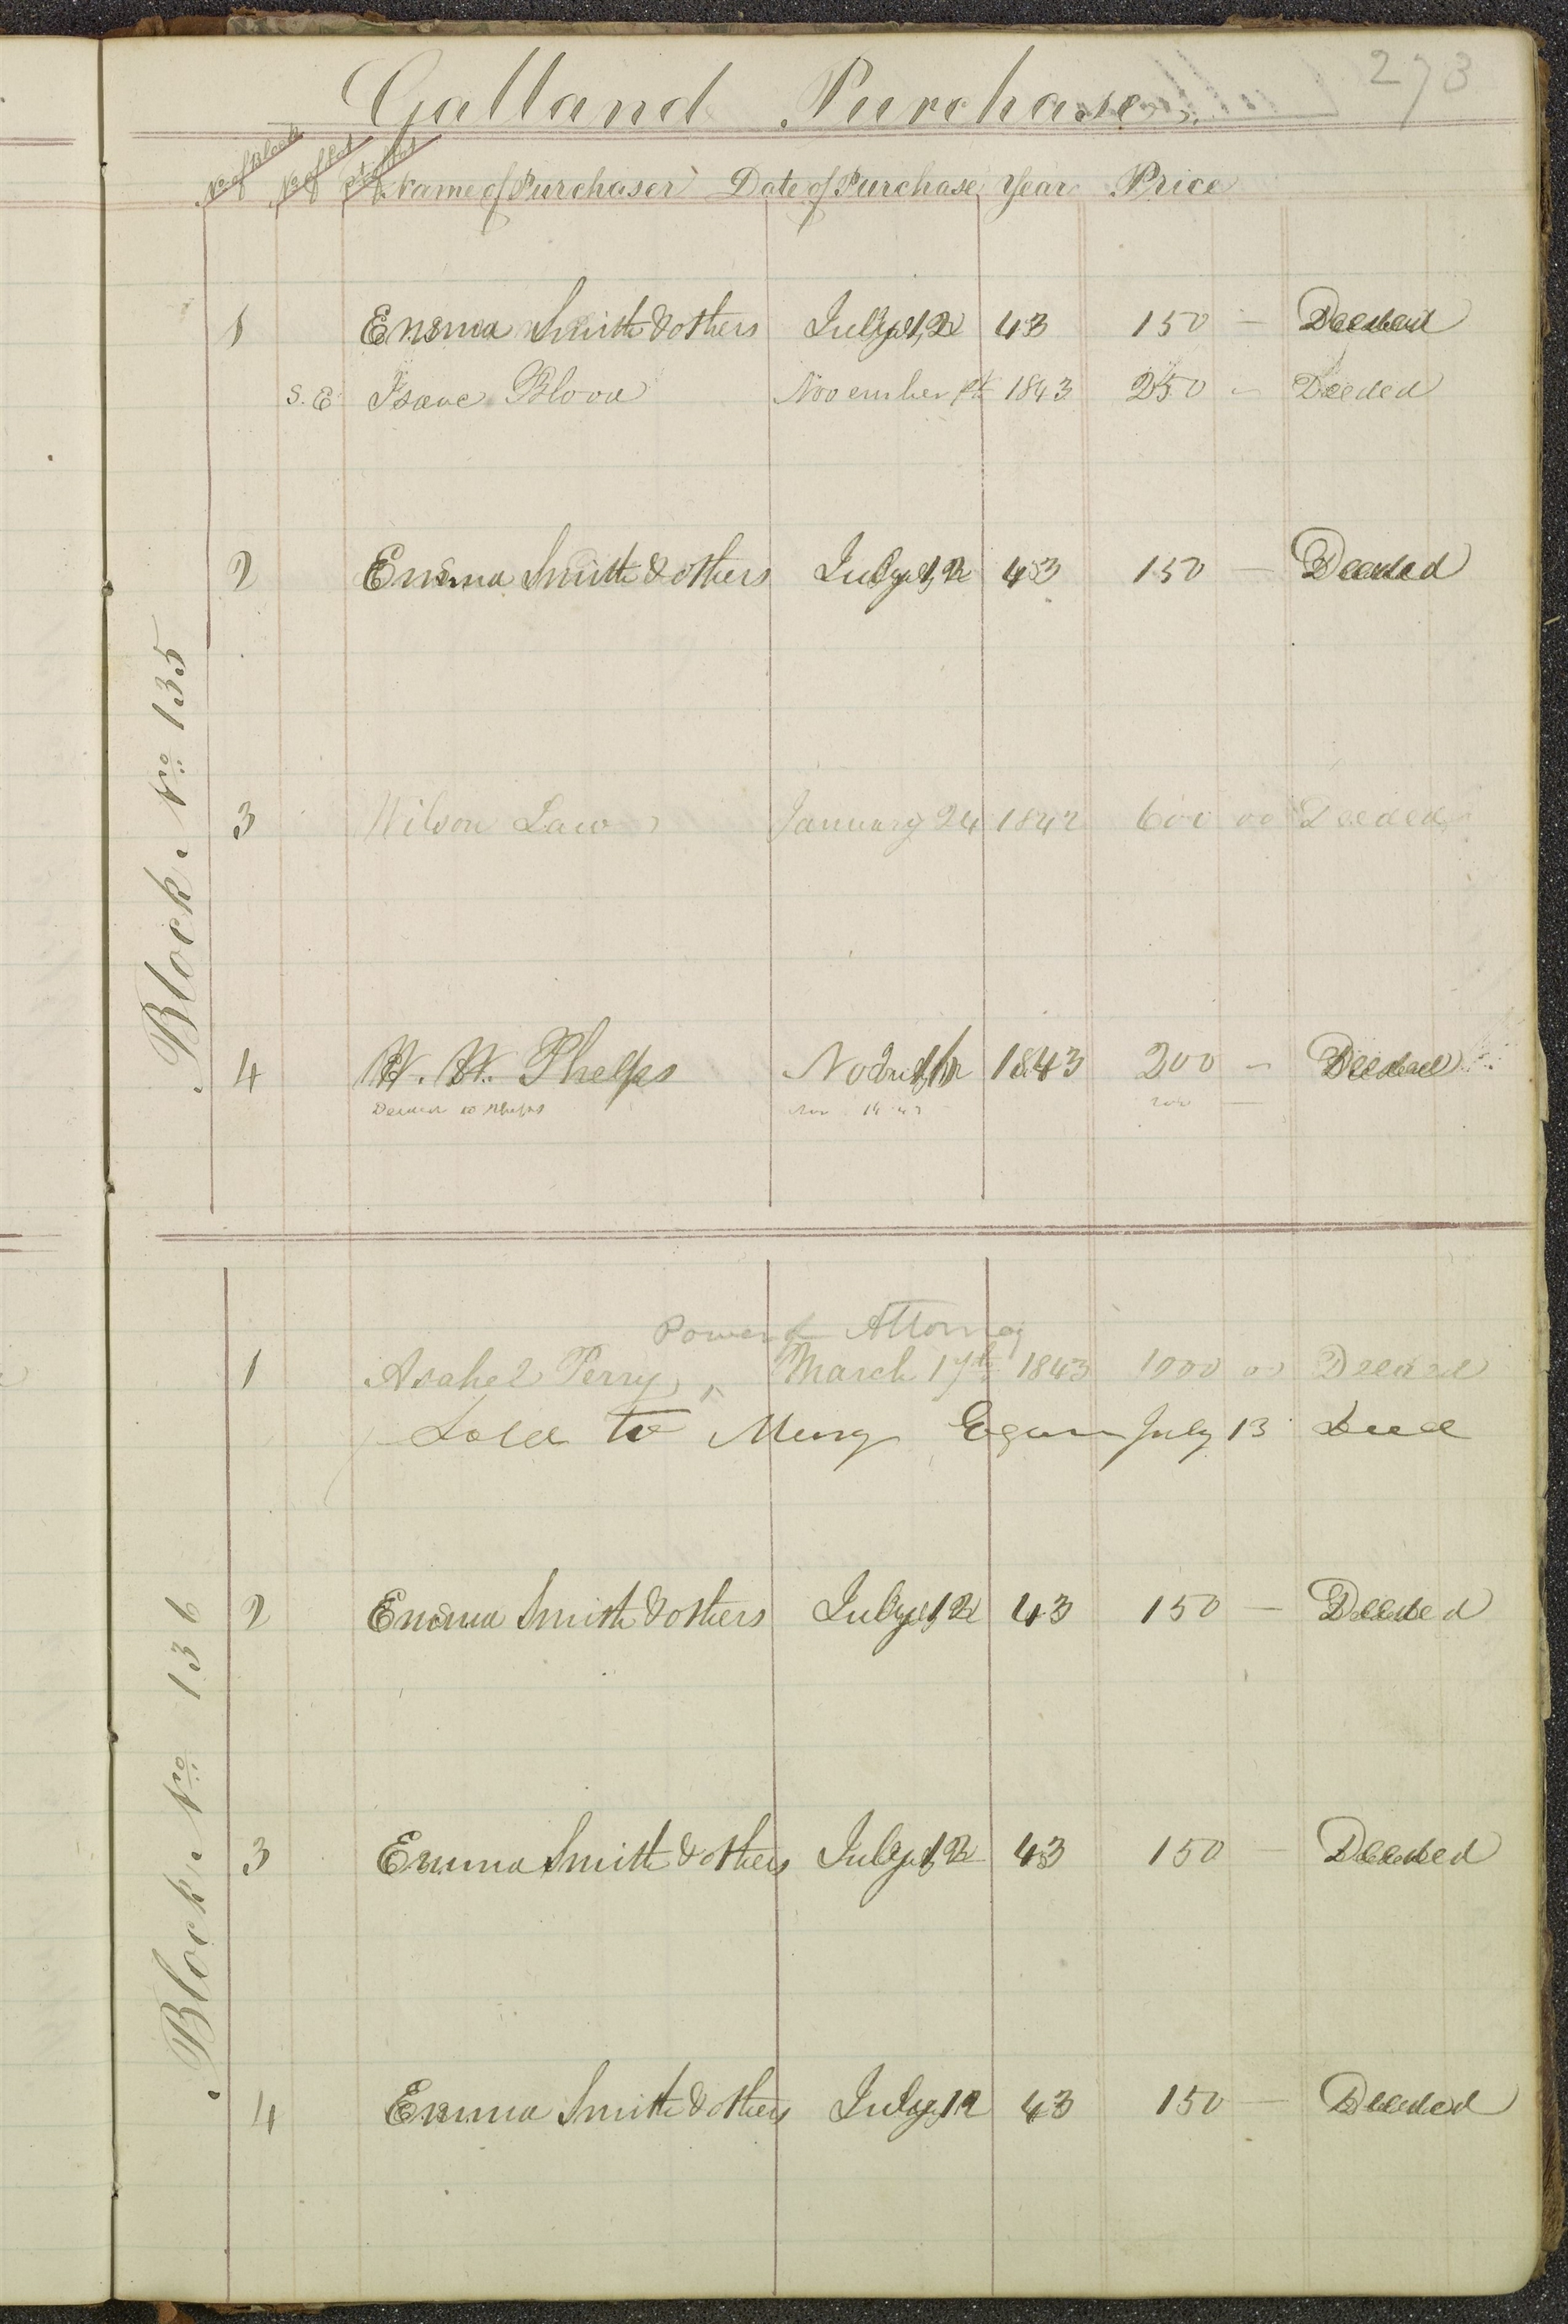 273
Galland Purchase
No of Block No of Lot Name of Purchaser Date of Purchase Year Price
Block No 135
1 Emma Smith & others July 12 43 150 – Deeded
S. E Isaac Blood November 1843 250 – Deeded
2 Emma Smith & others July 12 43 150 – Deeded
3 Wilson Law January 24 1842 600 00 Deeded
4 W. W. Phelps 1843 200 – Deeded
Deeded to Phelps Nov
Block No 136
Power of Attorney
1 Asahel Perry ^ March 17th 1843 1000 00 Deeded
Sold to Egan July 13 Deed
2 Emma Smith & others July 12 43 150 – Deeded
3 Emma Smith & others July 12 43 150 – Deeded
4 Emma Smith & others July 12 43 150 – Deeded